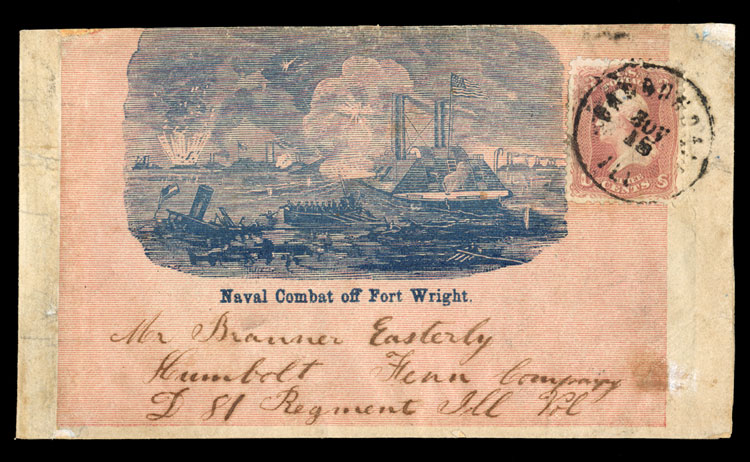 CARBONDALE
NOV
15
ILL
CENTS
Naval Combat off Fort Wright.
Mr Branner Easterly
Humbolt Tenn Company
D 81 Regment Ill Vol